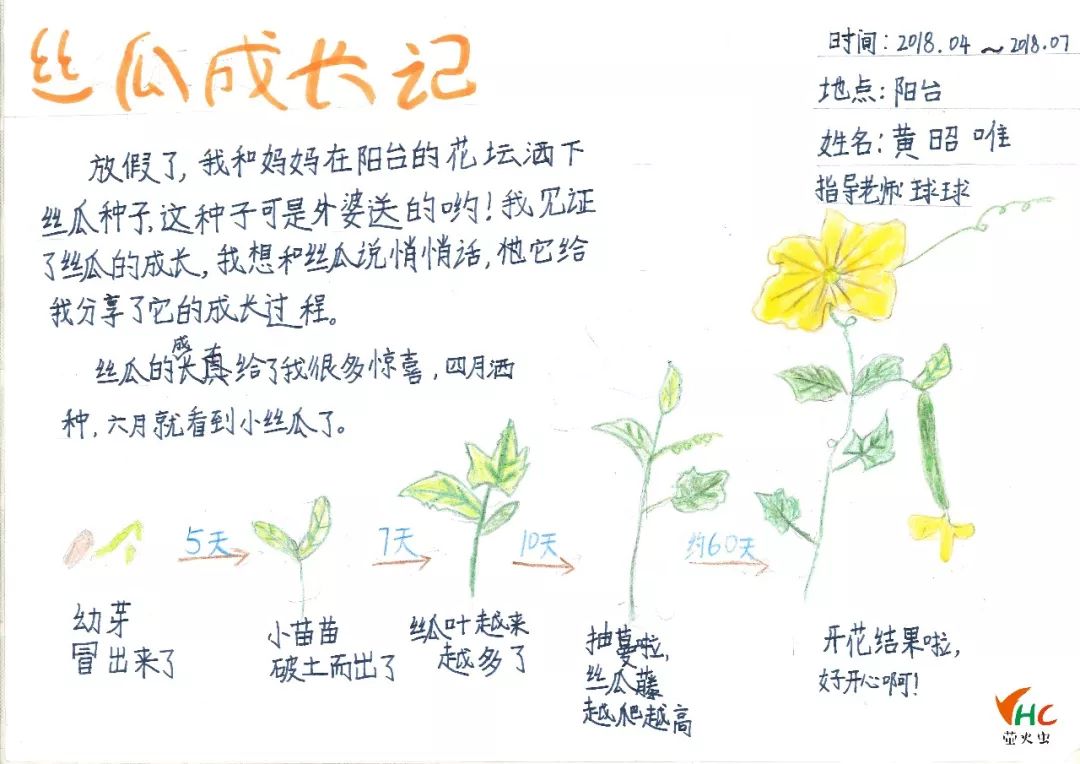 丝瓜成长记
时间：2018.04 ～2018.07
地点：阳台
姓名：黄昭唯
指导老师：球球
放假了，我和妈妈在阳台的花坛洒下
丝瓜种子，这种子可是外婆送的哟！我见证
了丝瓜的成长，我想和丝瓜说悄悄话，他它给
我分享了它的成长过程。
丝瓜的成长真给了我很多惊喜，四月洒
种，六月就看到小丝瓜了。
5天
7天
10天
约60天
幼芽
冒出来了
小苗苗
破土而出了
丝瓜叶越来
越多了
抽蔓啦，
丝瓜藤
越爬越高
开花结果啦，
好开心啊！
HC
萤火虫